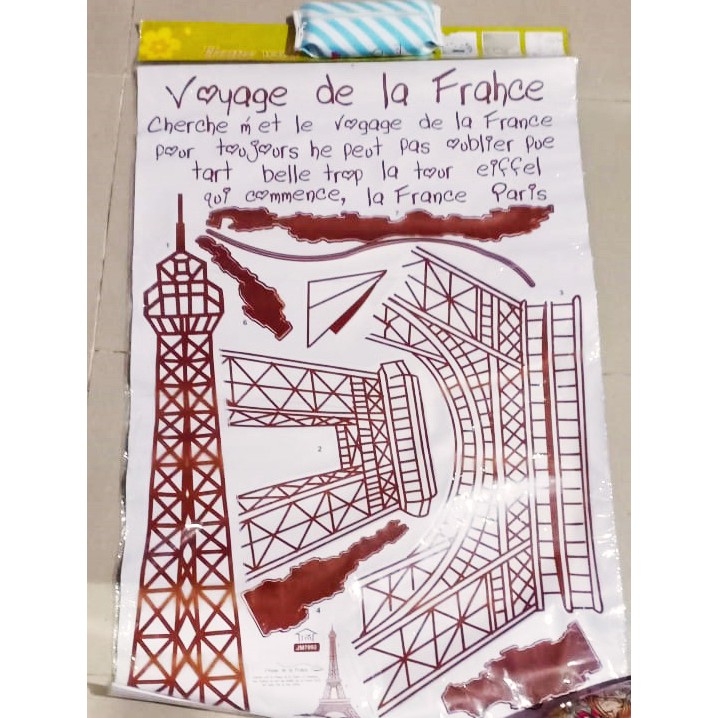 Voyage de la Frahce
Cherche m'et le vogage de la France
pour toujours he peut pas oublier pue
tart belle trop la tour eiffel
qui commence, la France Paris
1
3
6
2
4
JM7092